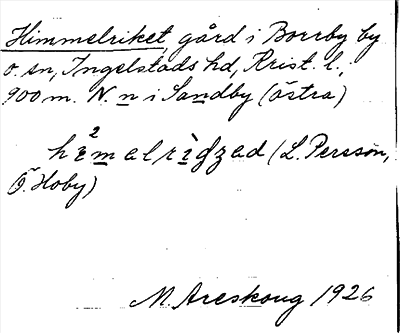 Himmelriket, gård i Borrby by
o. sn, Ingelstads hd, Krist. l.,
900 m. N. n i Sandby (Östra)
(L. Persson,
Ö. Hoby)
M. Areskoug 1926